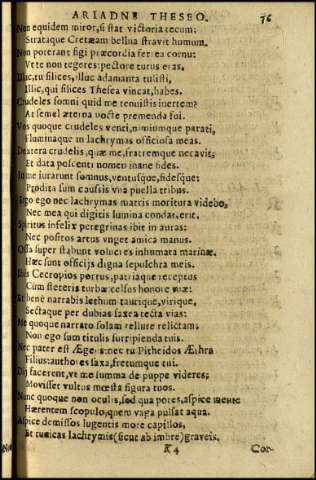 ARIADNE THESEO. 76
Non equidem miror, si stat victoria tecum:
Strataque Cretæam bellua stravit humum.
Non poterant figi præcordia ferrea cornu:
Vt te non tegeres: pectore tutus eras,
Illuc, tu silices, illuc adamanta tulisti,
Illic, qui silices Thesea vincat, habes.
Crudeles somni quid me tenuistis inertem?
At semel æterna nocte premenda fui.
Vos quoque crudeles venti, nimiumque parati,
Fluminaque in lachrymas officiosa meas.
Dextera crudelis, quæ me, fratremque necavit;
Et data poscenti nomen inane fides.
In me iurarunt somnus, ventusque, fidesque:
Prodita sum caussis vna puella tribus.
Ergo ego nec lachrymas matris moritura videbo,
Nec mea qui digitis lumina condat, erit.
Spiritus infelix peregrinas ibit in auras:
Nec positos artus vnget amica manus.
Ossa super stabunt volucres inhumata marinæ.
Hæc sunt officijs digna sepulchra meis.
Ibis Cecropios portus, patriaque receptus
Cum steteris turbæ celsos honore tuæ:
Et benè narrabis lethum taurique, virique,
Sectaque per dubias saxea tecta vias:
Me quoque narrato solam tellure relictam:
Non ego sum titulis surripienda tuis.
Nec pater est Ægeus: nec tu Pitheidos Æthræ
Filius: authores saxa, fretumque tui.
Dij facerent, vt me summa de puppe videres;
Movisset vultus mœsta figura tuos.
Nunc quoque non oculis, sed qua potes, aspice mente
Hærentem scopulo, quem vaga pulsat aqua.
Aspice demissos lugentis more capillos,
Et tunicas lachrymis (sicut ab imbre) graveis.
K 4 Cor-